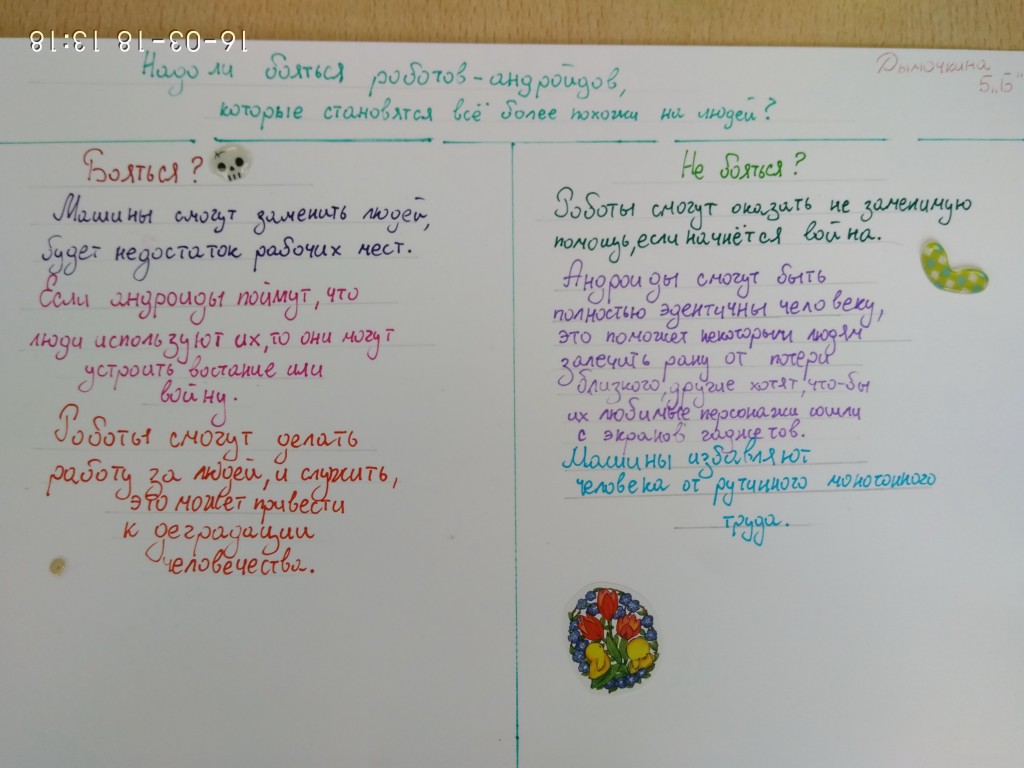 16-03-18 13:18
Надо ли бояться роботов-андройдов,
которые становятся всё более похожи на людей?
Дымочкина
5„Б"
Бояться?
Машины смогут заменить людей,
будет недостаток рабочих мест.
Если андроиды поймут, что
люди используют их, то они могут
устроить востание или
войну.
Роботы смогут делать
работу за людей, и служить,
это может привести
к деградации
человечества.
Не бояться?
Роботы смогут оказать не заменимую
помощь, если начнётся война.
Андроиды смогут быть
полностью эдентичны человеку,
это поможет некоторым людям
залечить рану от потери
близкого, другие хотят, что-бы
их любимые персонажи сошли
с экранов гаджетов.
Машины избавляют
человека от рутинного монотонного
труда.